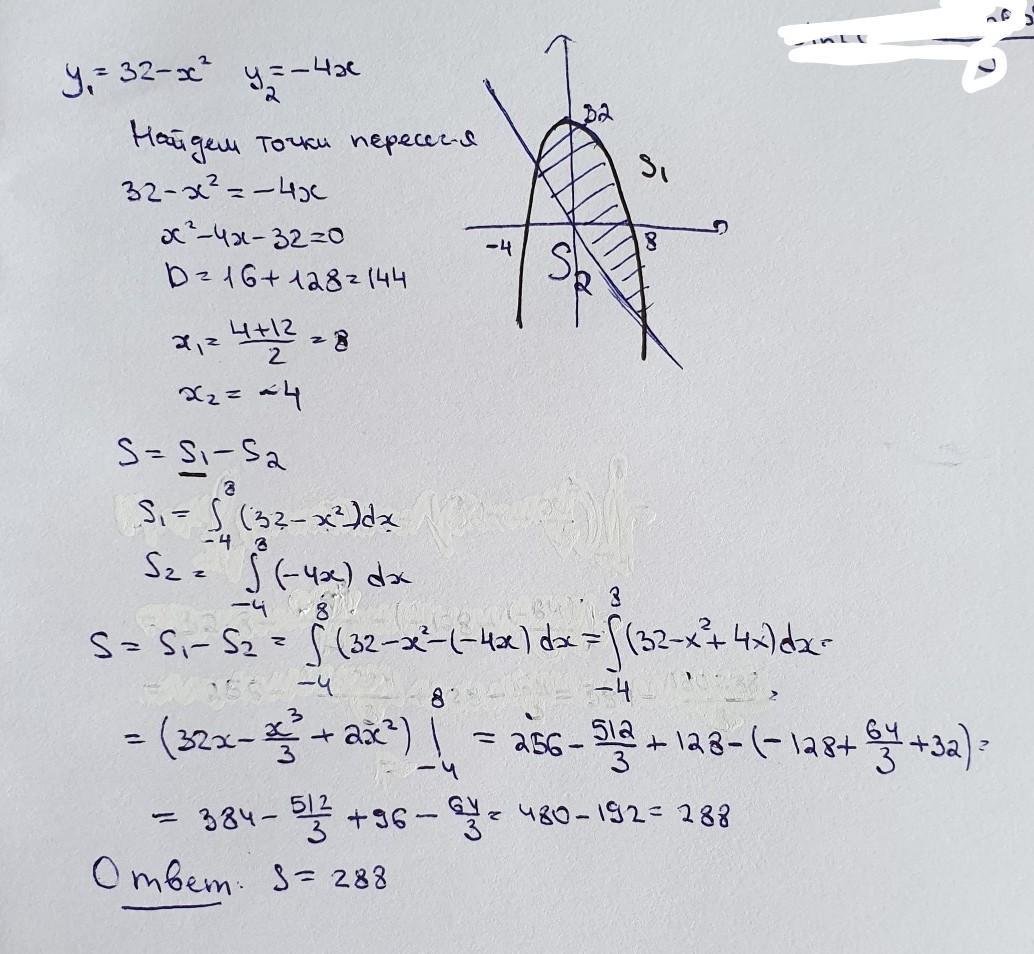 y₁ = 32-x² y₂ = -4x
Найдем точки пересеч-я
32-x² = -4x
x²-4x-32=0
D = 16+128=144
x₁ = (4+12)/2 = 8
x₂ = -4
32
S₁
-4
8
S₂
S = S₁ - S₂
S₁ = ∫₋₄⁸ (32-x²)dx
S₂ = ∫₋₄⁸ (-4x) dx
S = S₁ - S₂ = ∫₋₄⁸ (32-x²-(-4x) dx = ∫₋₄⁸ (32-x²+4x)dx =
= (32x - x³/3 + 2x²) |₋₄⁸ = 256 - 512/3 + 128 - (-128 + 64/3 + 32) =
= 384 - 512/3 + 96 - 64/3 = 480-192 = 288
Ответ: S = 288